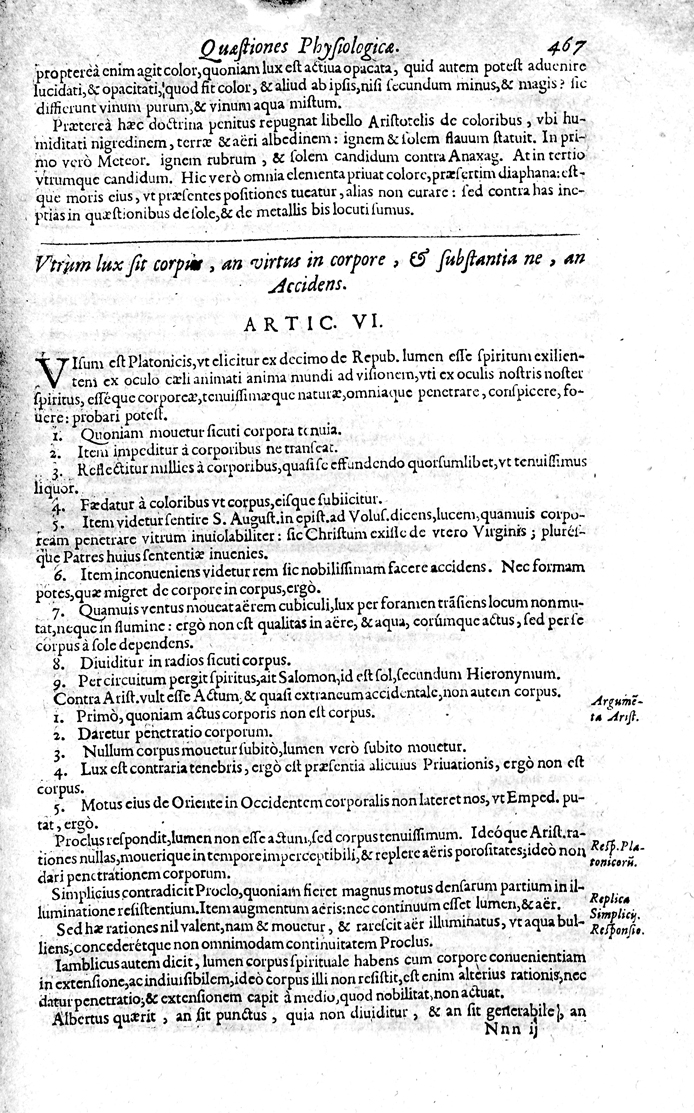 Quæſtiones Phyſiologicæ. 467
proptereà enim agit color, quoniam lux eſt actiua opacata, quid autem poteſt aduenire
lucidati, & opacitati, quod ſit color, & aliud ab ipſis, niſi ſecundum minus, & magis? ſic
differunt vinum purum, & vinum aqua miſtum.
Prætereà hæc doctrina penitus repugnat libello Ariſtotelis de coloribus, vbi hu-
miditati nigredinem, terræ & aëri albedinem: ignem & ſolem flauum ſtatuit. In pri-
mo verò Meteor. ignem rubrum, & ſolem candidum contra Anaxag. At in tertio
vtrumque candidum. Hic verò omnia elementa priuat colore, præſertim diaphana: eſt-
que moris eius, vt præſentes poſitiones tueatur, alias non curare: ſed contra has ine-
ptias in quæſtionibus de ſole, & de metallis bis locuti ſumus.
Vtrum lux ſit corpus, an virtus in corpore, & ſubſtantia ne, an
Accidens.
ARTIC. VI.
VIſum eſt Platonicis, vt elicitur ex decimo de Repub. lumen eſſe ſpiritum exilien-
tem ex oculo cæli animati anima mundi ad viſionem, vti ex oculis noſtris noſter
ſpiritus, eſſéque corporeæ, tenuiſſimæque naturæ, omniaque penetrare, conſpicere, fo-
uere: probari poteſt.
1. Quoniam mouetur ſicuti corpora tenuia.
2. Item impeditur à corporibus ne tranſeat.
3. Reflectitur nullies à corporibus, quaſi ſe effundendo quorſumlibet, vt tenuiſſimus
liquor.
4. Fædatur à coloribus vt corpus, eiſque ſubiicitur.
5. Item videtur ſentire S. Auguſt. in epiſt. ad Voluſ. dicens, lucem, quamuis corpo-
ream penetrare vitrum inuiolabiliter: ſic Chriſtum exiſſe de vtero Virginis; plureſ-
que Patres huius ſententiæ inuenies.
6. Item inconueniens videtur rem ſic nobiliſſimam facere accidens. Nec formam
potes, quæ migret de corpore in corpus, ergò.
7. Quamuis ventus moueat aërem cubiculi, lux per foramen trãſiens locum non mu-
tat, neque in flumine: ergò non eſt qualitas in aëre, & aqua, corúmque actus, ſed per ſe
corpus à ſole dependens.
8. Diuiditur in radios ſicuti corpus.
9. Per circuitum pergit ſpiritus, ait Salomon, id eſt ſol, ſecundum Hieronymum.
Contra Ariſt. vult eſſe Actum, & quaſi extraneum accidentale, non autem corpus.
Argumẽ-
ta Ariſt.
1. Primò, quoniam actus corporis non eſt corpus.
2. Daretur penetratio corporum.
3. Nullum corpus mouetur ſubitò, lumen verò ſubito mouetur.
4. Lux eſt contraria tenebris, ergò eſt præſentia alicuius Priuationis, ergò non eſt
corpus.
5. Motus eius de Oriente in Occidentem corporalis non lateret nos, vt Emped. pu-
tat, ergò.
Proclus reſpondit, lumen non eſſe actum, ſed corpus tenuiſſimum. Ideóque Ariſt. ra-
tiones nullas, mouerique in tempore imperceptibili, & replere aëris poroſitates; ideò non
dari penetrationem corporum.
Reſp. Pla-
tonicorũ.
Simplicius contradicit Proclo, quoniam fieret magnus motus denſarum partium in il-
luminatione reſiſtentium. Item augmentum aëris: nec continuum eſſet lumen, & aër.
Replica
Simplicij.
Sed hæ rationes nil valent, nam & mouetur, & rareſcit aër illuminatus, vt aqua bul-
liens, concederétque non omnimodam continuitatem Proclus.
Reſponſio.
Iamblicus autem dicit, lumen corpus ſpirituale habens cum corpore conuenientiam
in extenſione, ac indiuiſibilem, ideò corpus illi non reſiſtit, eſt enim alterius rationis, nec
datur penetratio; & extenſionem capit à medio, quod nobilitat, non actuat.
Albertus quærit, an ſit punctus, quia non diuiditur, & an ſit generabile, an
Nnn ij